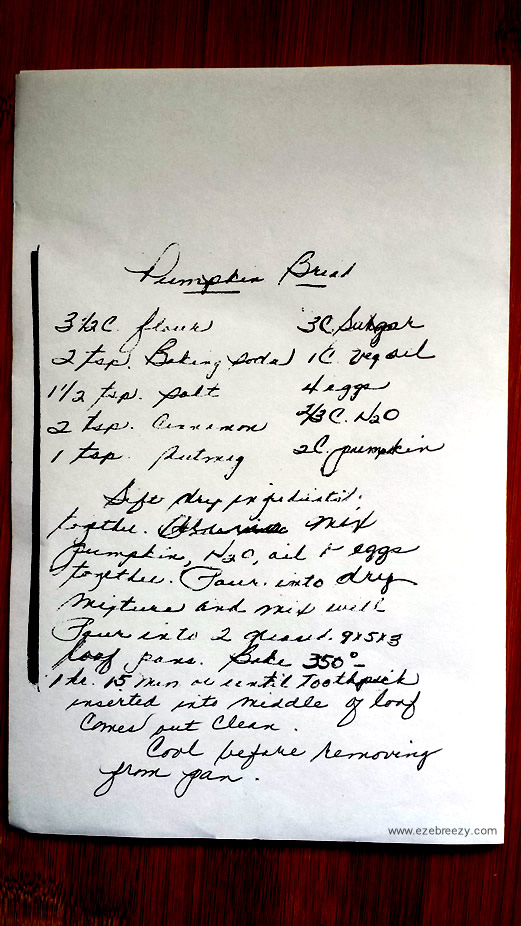 Pumpkin Bread
3 1/2 C. flour 3 C. Sugar
2 tsp. Baking soda 1 C. veg oil
1 1/2 tsp. salt 4 eggs
2 tsp. Cinnamon 2/3 C. H2O
1 tsp. nutmeg 2 C. pumpkin
Sift dry ingredients
together. Mix
pumpkin, H2O, oil & eggs
together. Pour into dry
mixture and mix well
Pour into 2 greased 9x5x3
loaf pans. Bake 350° -
1 hr. 15 min or until toothpick
inserted into middle of loaf
comes out clean.
Cool before removing
from pan.
www.ezebreezy.com